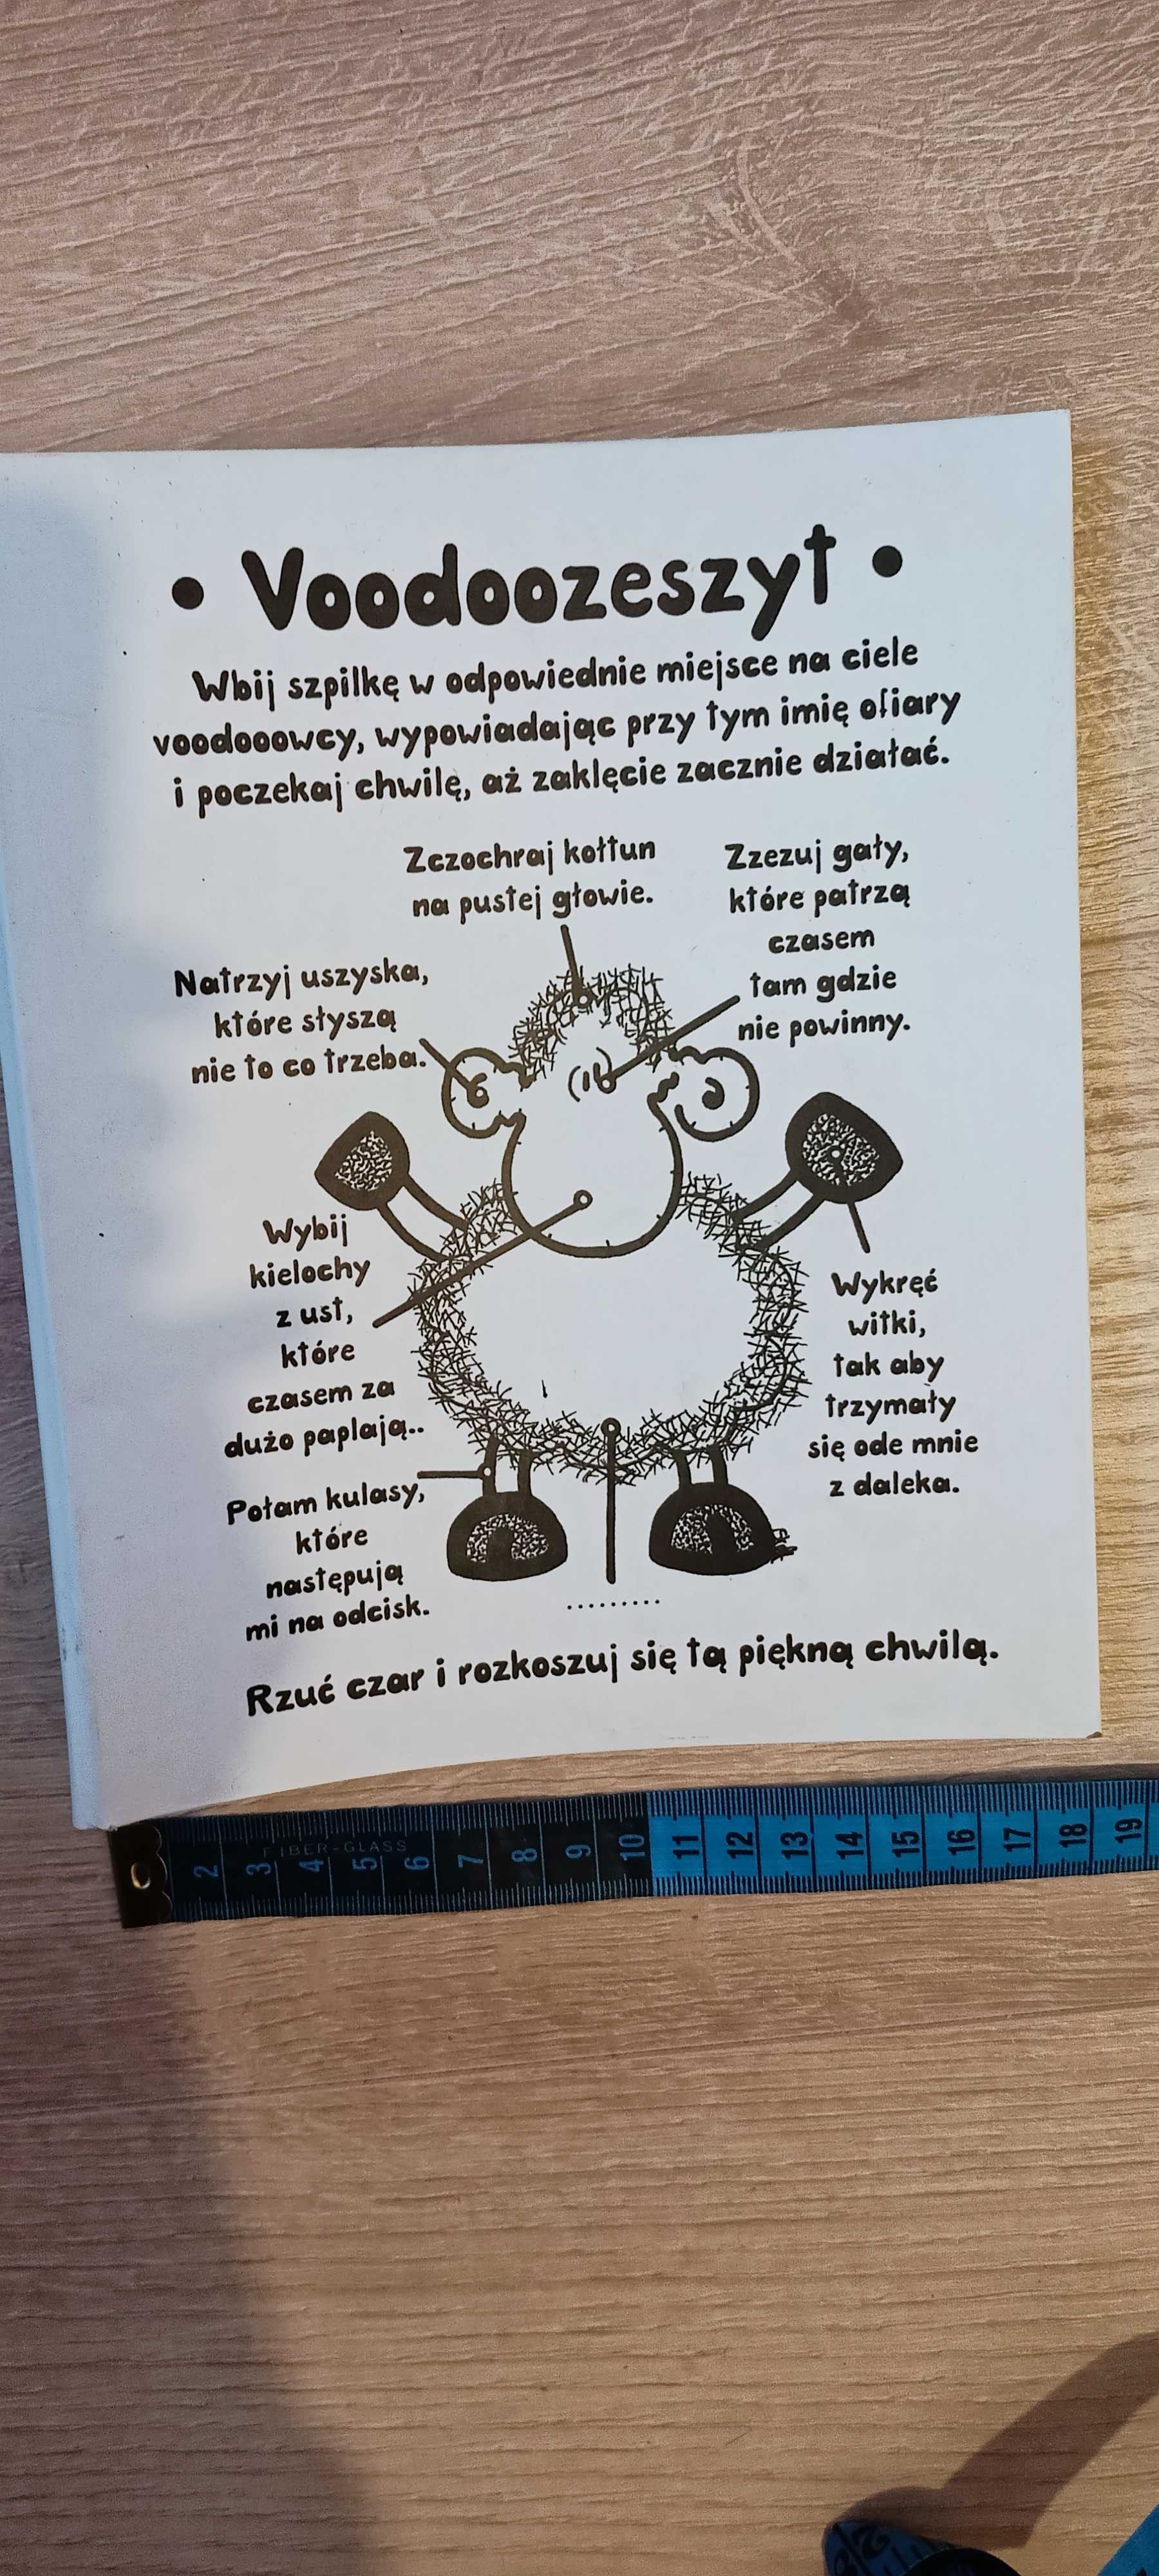 • Voodoozeszyt •
Wbij szpilkę w odpowiednie miejsce na ciele
voodooowcy, wypowiadając przy tym imię ofiary
i poczekaj chwilę, aż zaklęcie zacznie działać.
Zczochraj kołtun
na pustej głowie.
Zzezuj gały,
które patrzą
czasem
tam gdzie
nie powinny.
Natrzyj uszyska,
które słyszą
nie to co trzeba.
Wybij
kielochy
z ust,
które
czasem za
dużo paplają..
Wykręć
witki,
tak aby
trzymały
się ode mnie
z daleka.
Połam kulasy,
które
następują
mi na odcisk.
.........
Rzuć czar i rozkoszuj się tą piękną chwilą.
FIBER-GLASS
2 3 4 5 6 7 8 9 10 11 12 13 14 15 16 17 18 19